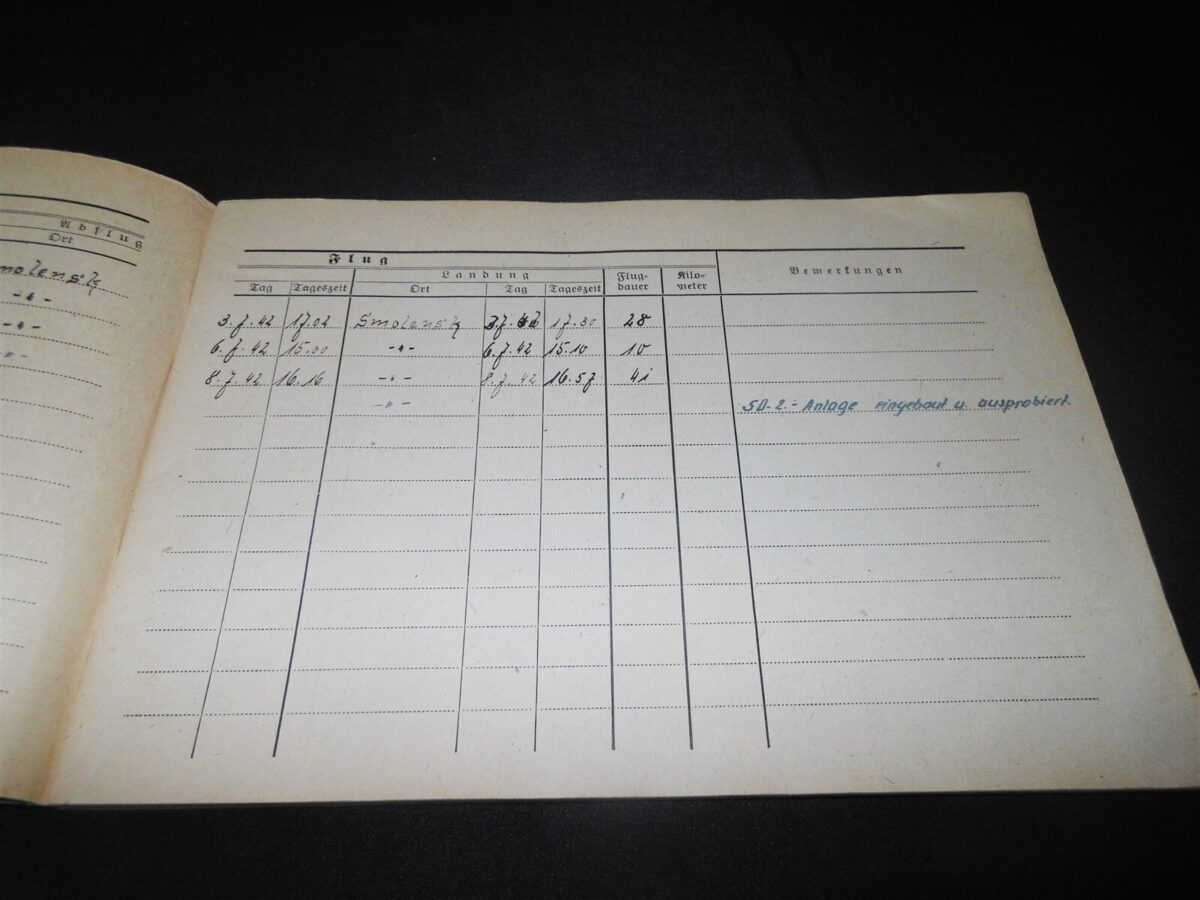 Abflug
Ort
molensk
-"-
-"-
-"-
Flug
Landung
Bemerkungen
Tag Tageszeit Ort Tag Tageszeit Flug-dauer Kilo-meter
3.7.42 17.02 Smolensk 3.7.42 17.30 28
6.7.42 15.00 -"- 6.7.42 15.10 10
8.7.42 16.16 -"- 8.7.42 16.57 41
-"- SD-2.- Anlage eingebaut u. ausprobiert.